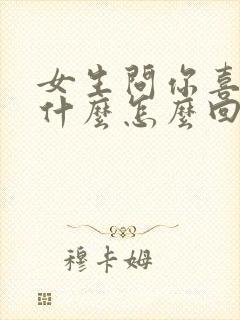 女生問你喜
什麼怎麼回
穆卡姆